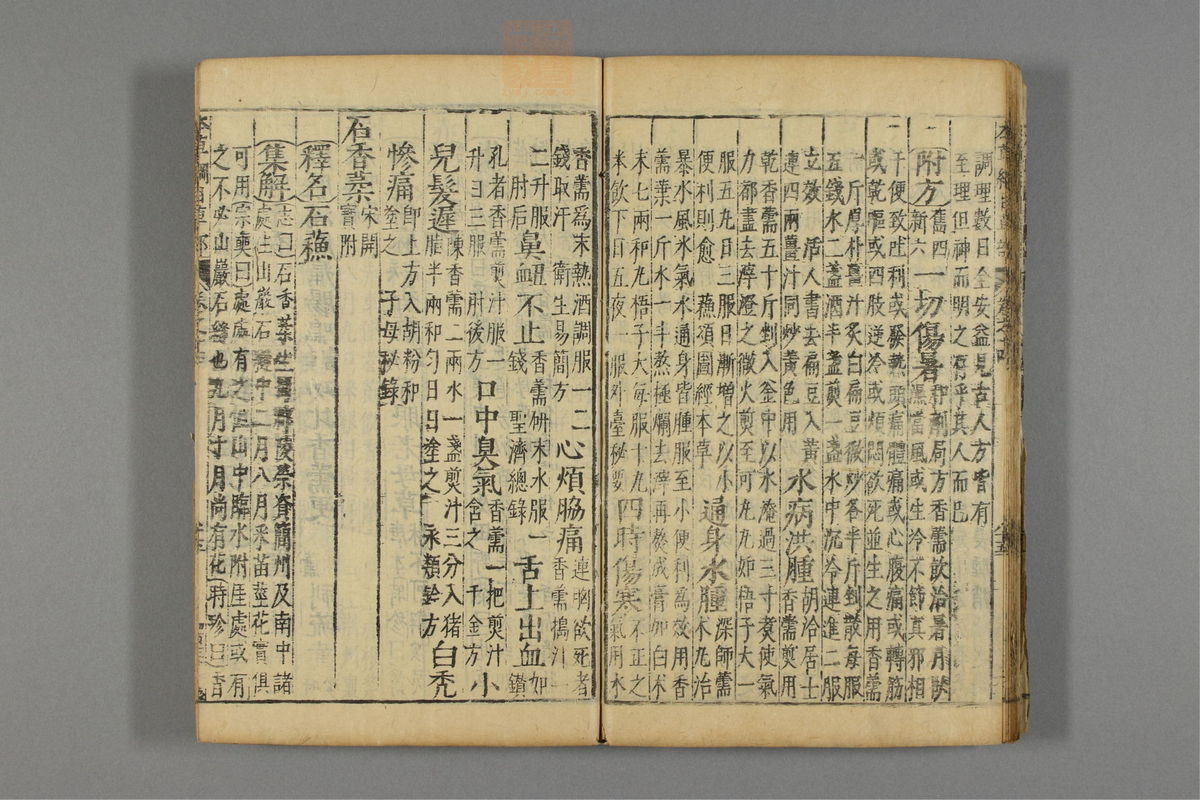 調理數日全安益見古人方皆有
至理但神而明之存乎其人而已
附方舊四新六一切傷暑和劑局方香薷飲治暑月臥
濕當風或生冷不節真邪相
干便致吐利或發熱頭痛體痛或心腹痛或轉筋
或乾嘔或四肢逆冷或煩悶欲死並主之用香薷
一斤厚朴薑汁炙白扁豆微炒各半斤剉散每服
五錢水二盞酒半盞煎一盞水中沉冷連進二服
立效 活人書去扁豆入黃
連四兩薑汁同炒黃色用水病洪腫胡洽居士
香薷煎用
乾香薷五十斤剉入釜中以水淹過三寸煮使氣
力都盡去滓澄之微火煎至可丸丸如梧子大一
服五丸日三服日漸增之以小
便利則愈 蘇頌圖經本草通身水腫深師薷
朮丸治
暴水風水氣水通身皆腫服至小便利為效用香
薷葉一斤水一斗熬極爛去滓再熬成膏加白朮
末七兩和丸梧子大每服十丸
米飲下日五夜一服外臺秘要四時傷寒不正之
氣用水
香薷爲末熱酒調服一二
錢取汗 衛生易簡方心煩脇痛連胸欲死者
香薷搗汁一
二升服
肘后鼻衄不止香薷研末水服一
錢 聖濟總錄舌上出血如
鑽
孔者香薷煎汁服一
升日三服 肘後方口中臭氣香薷一把煎汁
含之 千金方小
兒髮遲陳香薷二兩水一盞煎汁三分入猪
脂半兩和勻日日塗之 永類鈐方白禿
慘痛即上方入胡粉和
塗之 子母秘錄
石香葇宋開
寶附
釋名石蘇
集解志曰石香葇生蜀郡陵榮資簡州及南中諸
處生山巖石縫中二月八月采苗莖花實俱
可用宗奭曰處處有之但山中臨水附崖處或有
之不必山巖石縫也九月十月尚有花時珍曰香